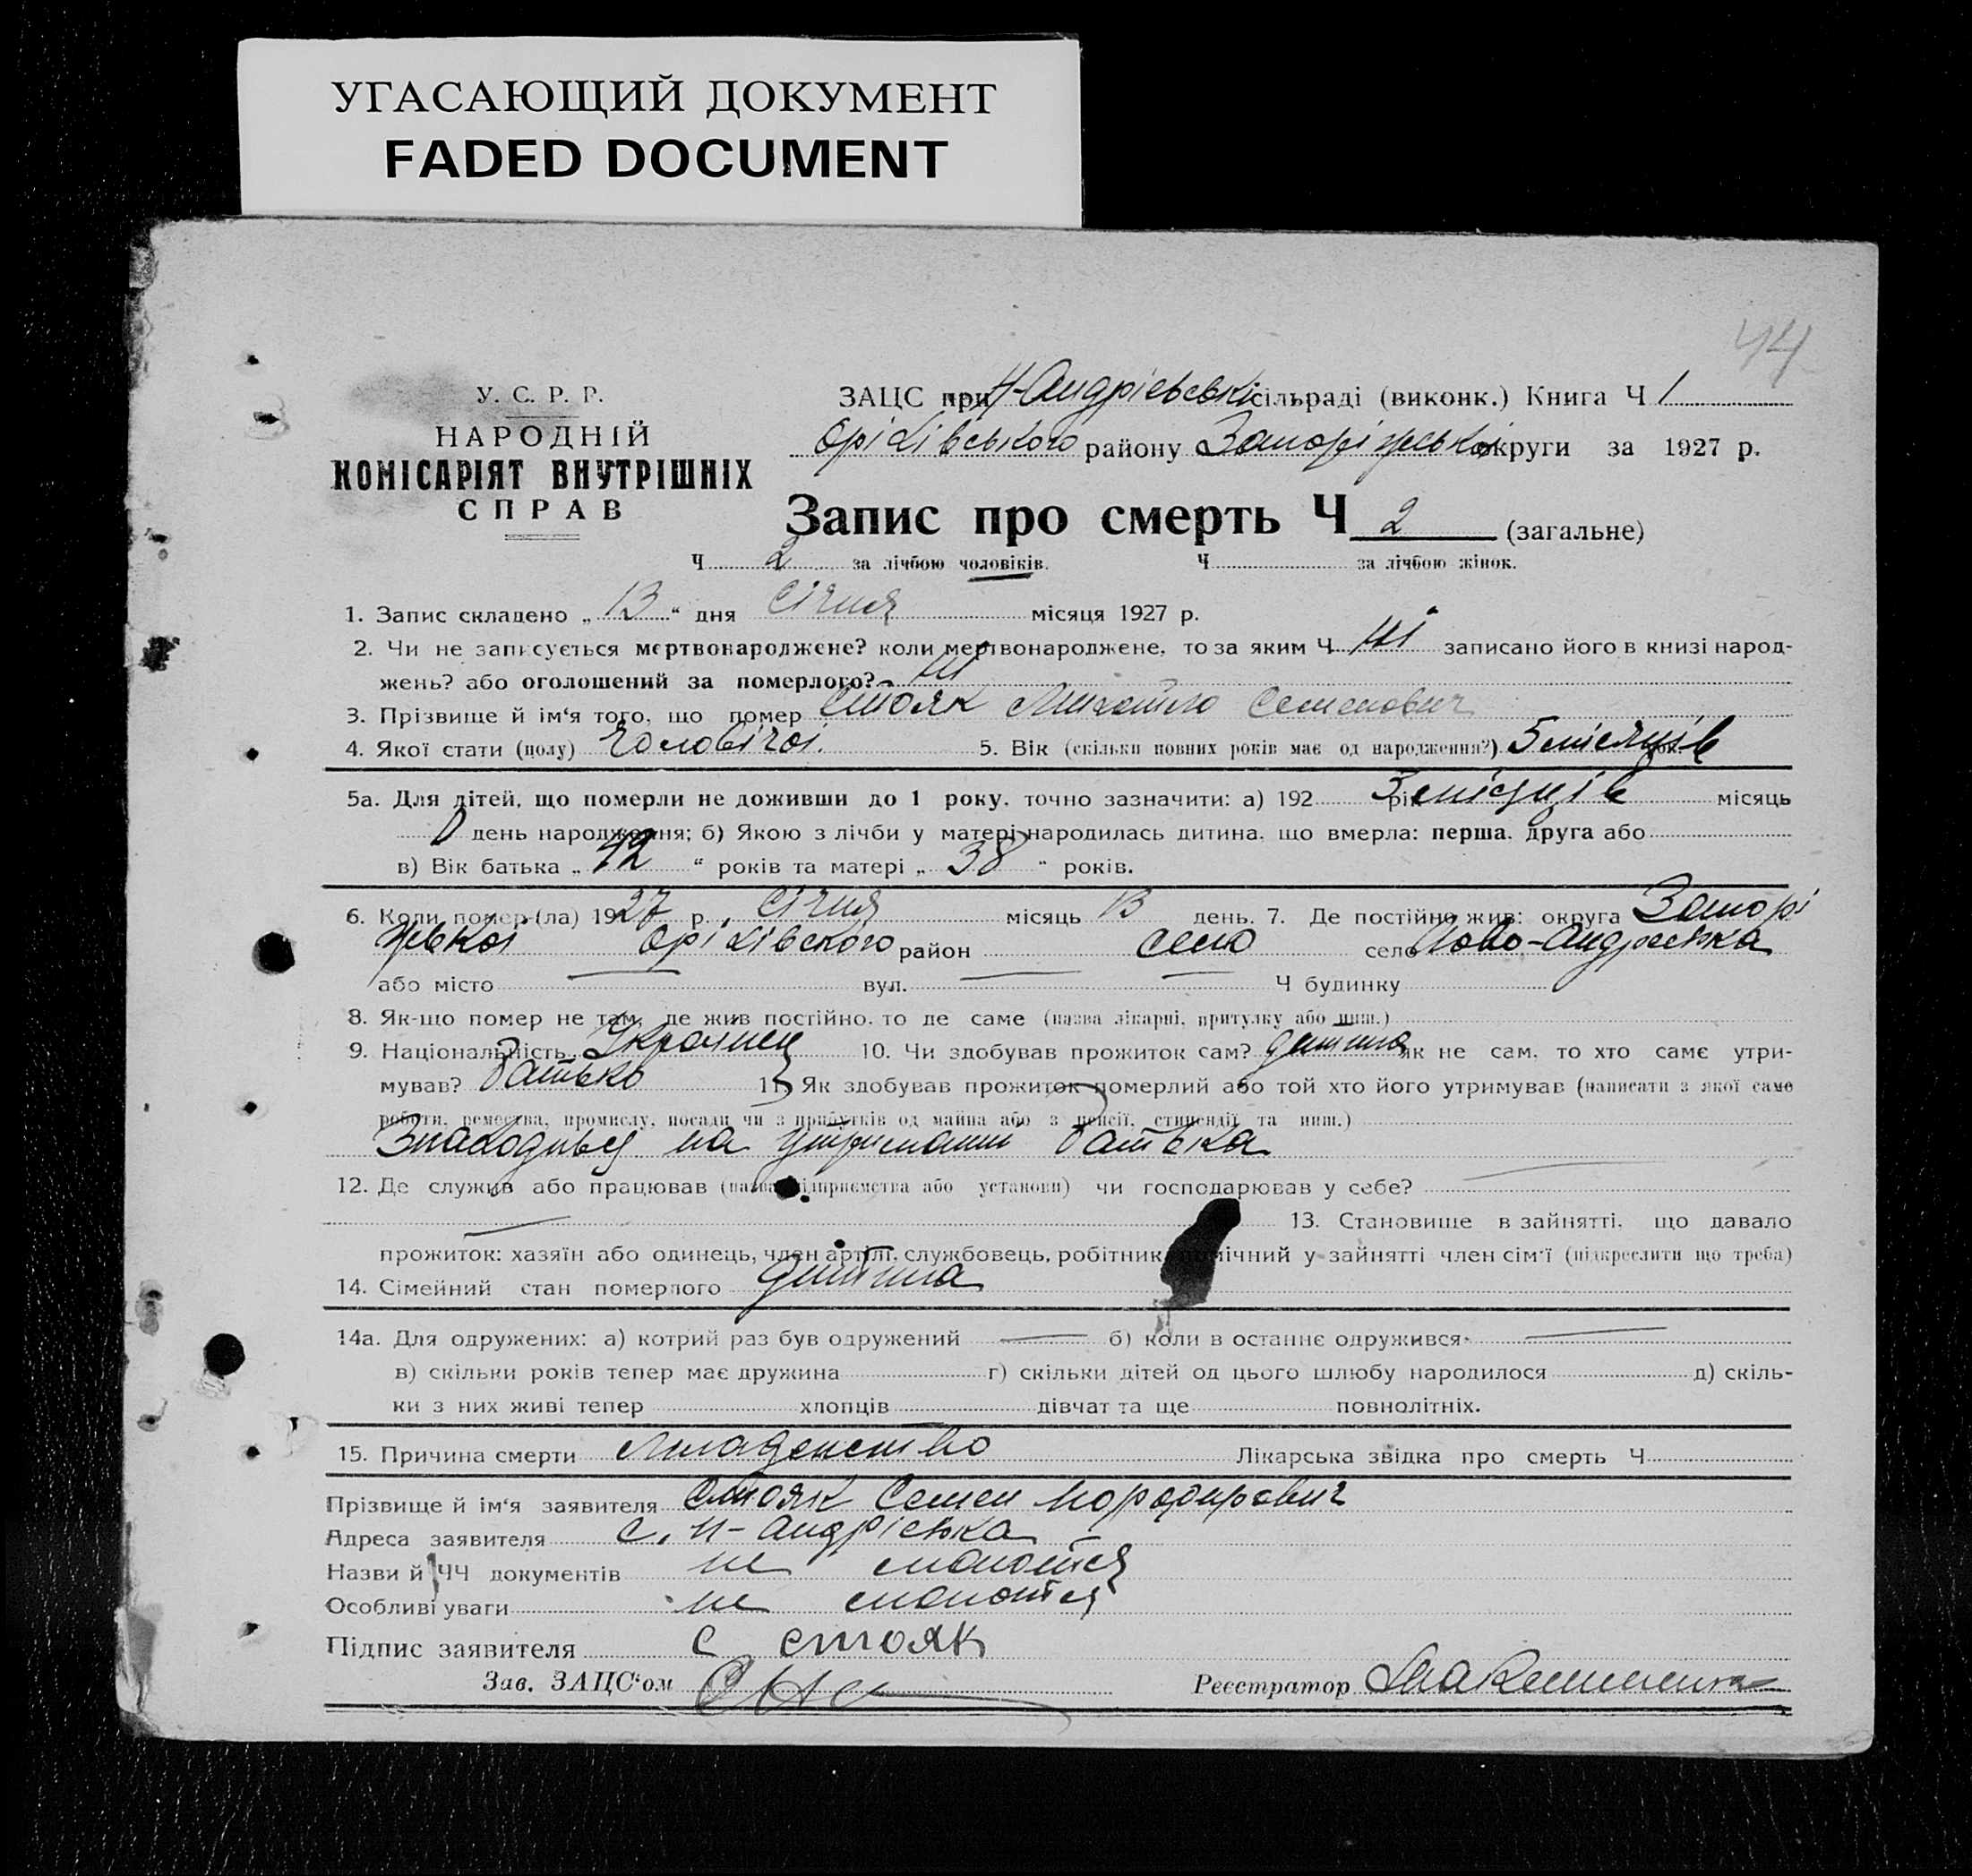 УГАСАЮЩИЙ ДОКУМЕНТ
FADED DOCUMENT
44
У. С. Р. Р.
НАРОДНІЙ
КОМІСАРІЯТ ВНУТРІШНІХ
СПРАВ
ЗАЦС при Н-Андріевські сільраді (виконк.) Книга Ч 1
Оріхівського району Запоріжської округи за 1927 р.
Запис про смерть Ч 2 (загальне)
Ч 2 за лічбою чоловіків. Ч за лічбою жінок.
1. Запис складено „ 13 “ дня Січня місяця 1927 р.
2. Чи не записується мертвонароджене? коли мертвонароджене, то за яким Ч Ні записано його в книзі народ-
жень? або оголошений за померлого? Ні
3. Прізвище й ім'я того, що помер Стояк Михайло Семенович
4. Якої стати (полу) Чоловічої. 5. Вік (скільки повних років має од народження?) 5 місяців
5а. Для дітей, що померли не доживши до 1 року, точно зазначити: а) 192 рік місяців місяць
день народження; б) Якою з лічби у матері народилась дитина, що вмерла: перша, друга або
в) Вік батька „ 42 “ років та матері „ 38 “ років.
6. Коли помер-(ла) 1927 р., Січня місяць 13 день. 7. Де постійно жив: округа Запорі
жської Оріхівського район село село Ново-Андрієвка
або місто — вул. — — Ч будинку
8. Як-що помер не там, де жив постійно, то де саме (назва лікарні, притулку або инш.)
9. Національність Украинец 10. Чи здобував прожиток сам? дитина як не сам, то хто саме утри-
мував? батько 11. Як здобував прожиток померлий або той хто його утримував (написати з якої саме
роботи, ремества, промислу, посади чи з прибутків од майна або з пенсії, стипендії та инш.)
Знаходився на утриманні батька
12. Де служив або працював (назва підприємства або установи) чи господарював у себе? —
— 13. Становище в зайнятті, що давало
прожиток: хазяїн або одинець, член артілі, службовець, робітник, помічний у зайнятті член сім'ї (підкреслити що треба)
14. Сімейний стан померлого дитина
14а. Для одружених: а) котрий раз був одружений — б) коли в останнє одружився —
в) скільки років тепер має дружина г) скільки дітей од цього шлюбу народилося д) скіль-
ки з них живі тепер хлопців дівчат та ще повнолітніх.
15. Причина смерти Младенство Лікарська звідка про смерть Ч
Прізвище й ім'я заявителя Стояк Семен
Адреса заявителя с. Н-Андрієвка
Назви й ЧЧ документів не маються
Особливі уваги не маються
Підпис заявителя С Стояк
Зав. ЗАЦС'ом
Реєстратор